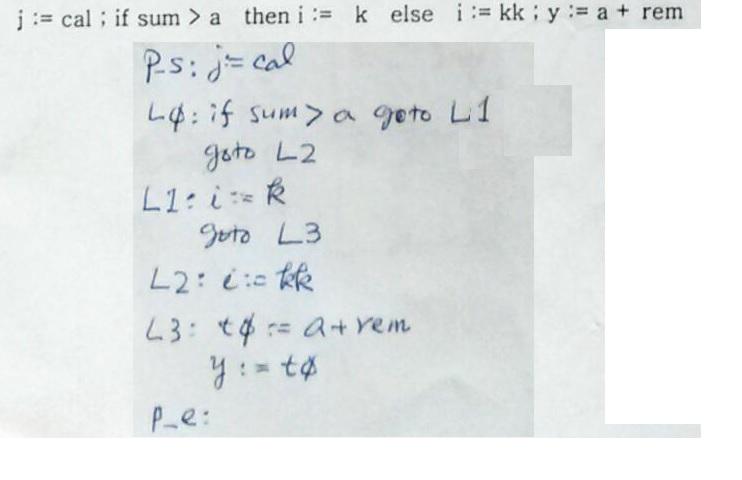 j := cal ; if sum > a then i := k else i := kk ; y := a + rem
P_s: j:= cal
L0: if sum > a goto L1
goto L2
L1: i := k
goto L3
L2: i := kk
L3: t0 := a + rem
y := t0
P_e: